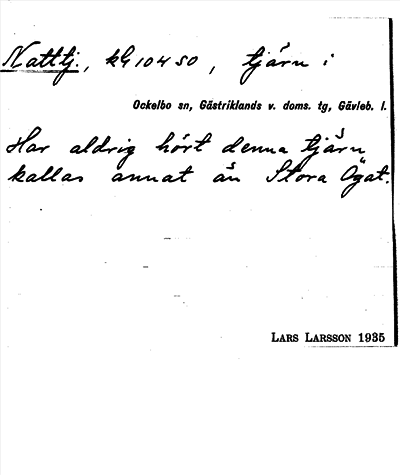 Natttj., kG 104 SO, tjärn i
Ockelbo sn, Gästriklands v. doms. tg, Gävleb. l.
Har aldrig hört denna tjärn
kallas annat än Stora Ögat.
LARS LARSSON 1935